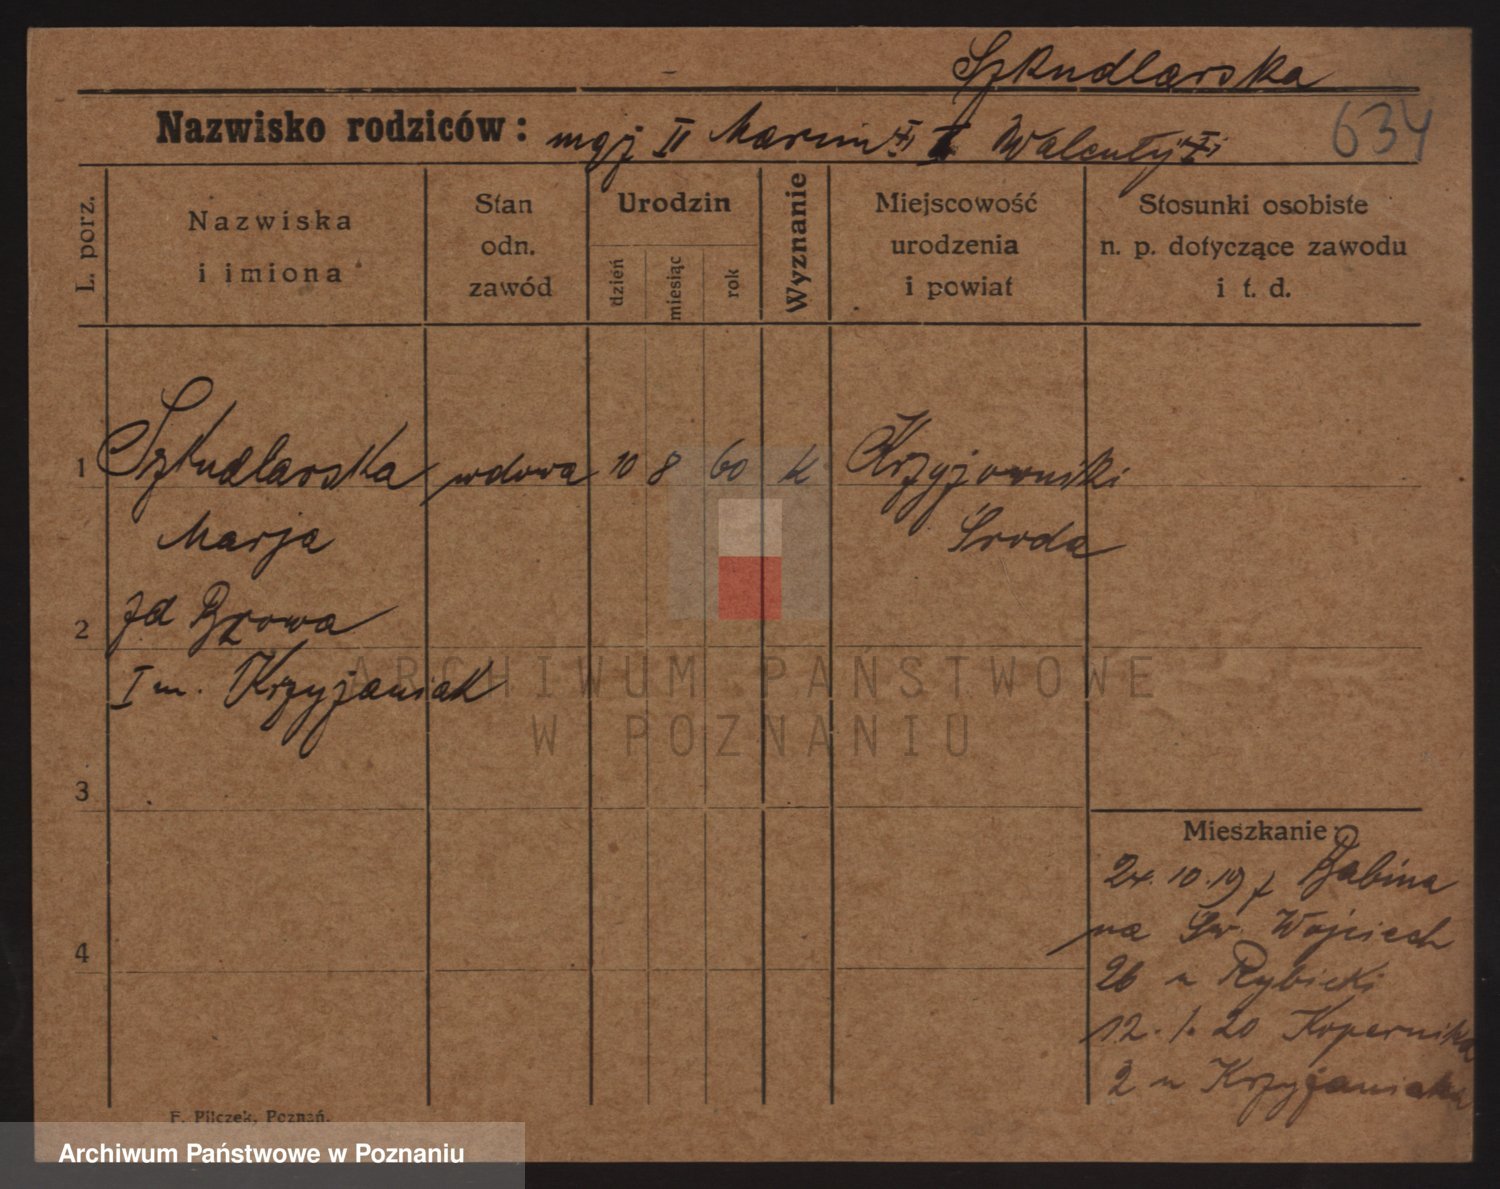 Szkudlarska
Nazwisko rodziców: mąż II Marcin I Walenty
634
L. porz.
Nazwiska
i imiona
Stan
odn.
zawód
Urodzin
dzień
miesiąc
rok
Wyznanie
Miejscowość
urodzenia
i powiat
Stosunki osobiste
n. p. dotyczące zawodu
i t. d.
1 Szkudlarska wdowa 10 8 60 k Krzyżowniki
Marja Środa
2 zd Bzowa
I m. Krzyżaniak
ARCHIWUM PAŃSTWOWE
W POZNANIU
3
Mieszkanie
24.10.19 z Babina
na Św. Wojciech
4
26 u Rybicki
12.1.20 Kopernika
2 u Krzyżaniaka
F. Pilczek, Poznań.
Archiwum Państwowe w Poznaniu